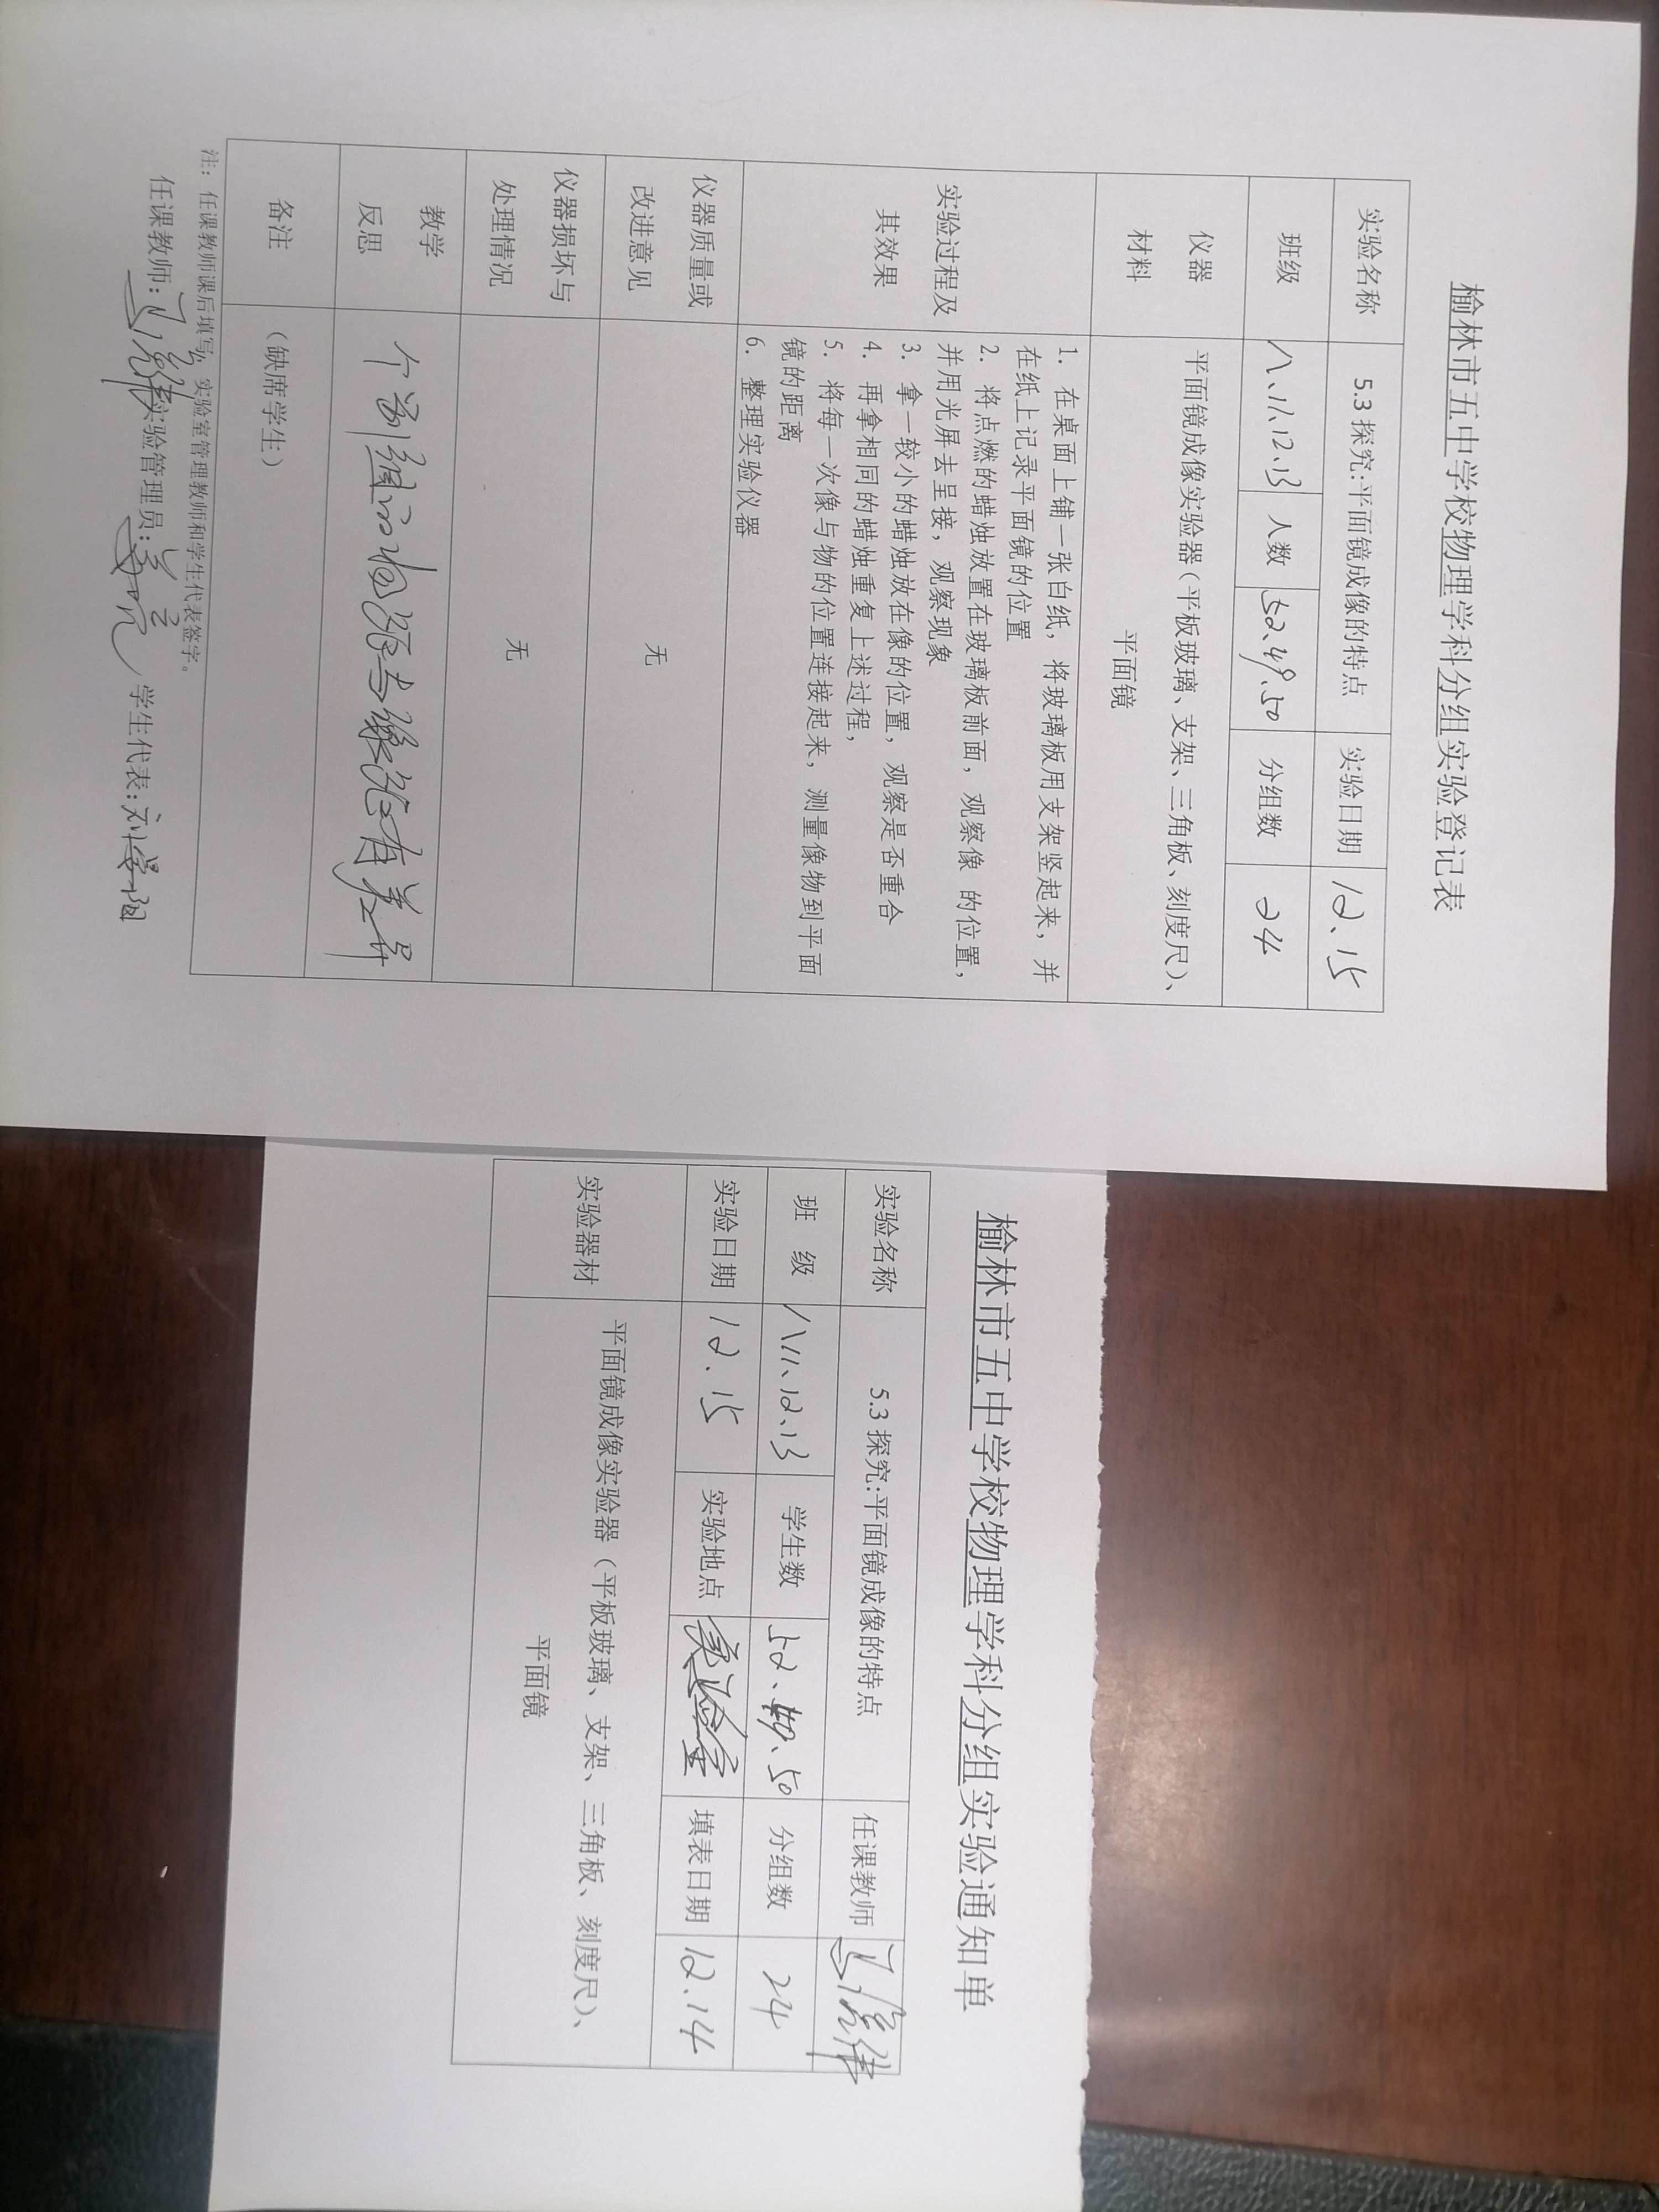 榆林市五中学校物理学科分组实验登记表
实验名称 5.3 探究:平面镜成像的特点 实验日期 12.15
班级 八、11、12、13 人数 52、49、50 分组数 24
仪器材料 平面镜成像实验器（平板玻璃、支架、三角板、刻度尺）、
平面镜
实验过程及其效果
1. 在桌面上铺一张白纸，将玻璃板用支架竖起来，并
在纸上记录平面镜的位置
2. 将点燃的蜡烛放置在玻璃板前面，观察像 的位置，
并用光屏去呈接，观察现象
3. 拿一较小的蜡烛放在像的位置，观察是否重合
4. 再拿相同的蜡烛重复上述过程，
5. 将每一次像与物的位置连接起来，测量像物到平面
镜的距离
6. 整理实验仪器
仪器质量或改进意见 无
仪器损坏与处理情况 无
教学反思 个别组的物距与像距有差异
备注 （缺席学生）
注：任课教师课后填写，实验室管理教师和学生代表签字。
任课教师: 实验管理员: 学生代表:
榆林市五中学校物理学科分组实验通知单
实验名称 5.3 探究:平面镜成像的特点 任课教师
班 级 八11、12、13 学生数 52、49、50 分组数 24
实验日期 12.15 实验地点 实验室 填表日期 12.14
实验器材 平面镜成像实验器（平板玻璃、支架、三角板、刻度尺）、
平面镜